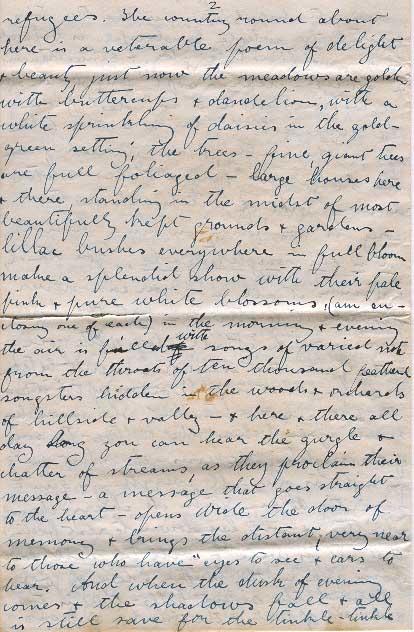 2
refugees. The country round about
here is a veterable poem of delight
& beauty just now the meadows are golden
with buttercups & dandelion, with a
white sprinkling of daisies in the gold-
green setting, the trees - fine, giant trees
are full foliaged - large houses here
& there, standing in the midst of most
beautifully kept grounds & gardens -
lillac bushes everywhere in full bloom
make a splendid show with their pale
pink & pure white blossoms, (am en-
closing one of each) in the morning & evening
the air is filled with songs of varied note
from the throats of ten thousand feathered
songsters hidden in the woods & orchards
of hillside & valley - & here & there all
day long you can hear the gurgle &
chatter of streams, as they proclaim their
message - a message that goes straight
to the heart - opens wide the door of
memory & brings the distant, very near
to those "who have" eyes to see & ears to
hear. And when the dusk of evening
comes & the shadows fall & all
is still save for the tinkle-tinkle